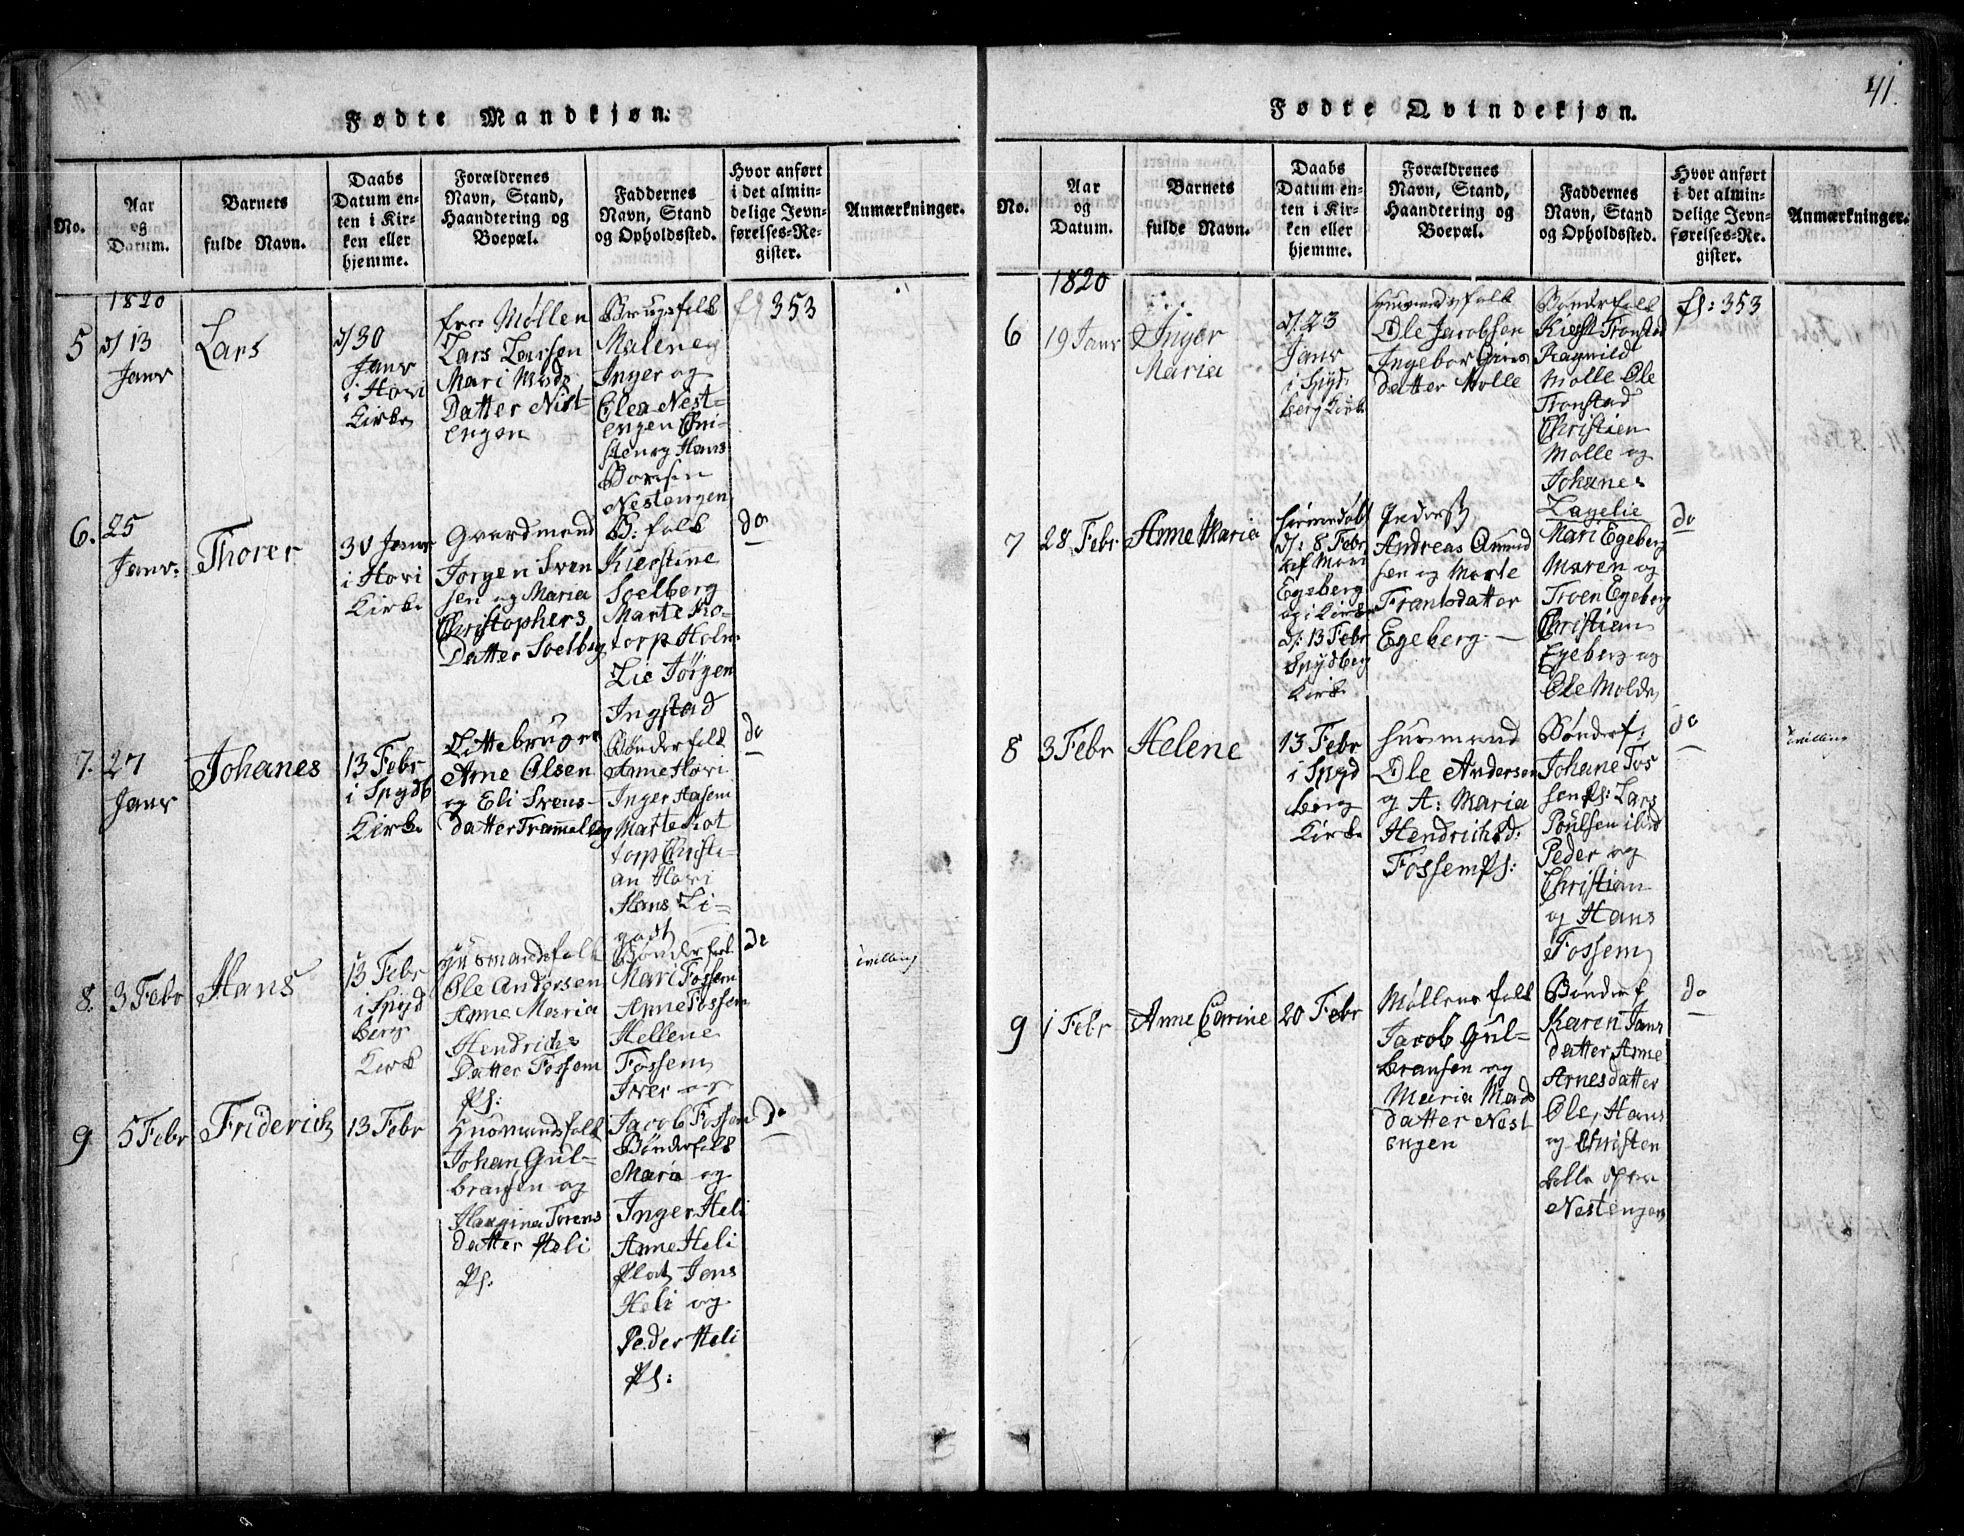 41.
Fødte Mandkjøn.
No.
Aar
og
Datum.
Barnets
fulde Navn.
Daabs
Datum en-
ten i Kir-
ken eller
hjemme.
Forældrenes
Navn, Stand,
Haandtering og
Boepæl.
Faddernes
Navn, Stand
og Opholdssted.
Hvor anført
i det almin-
delige Jevn-
førelses-Re-
gister.
Anmærkninger.
1820
5
d/ 13
Janr
Lars
d/ 30
Janr
i Hovi
Kirke
fra Møllen
Lars Larsen
Mari Mads
Datter Nest-
engen
Brugsfolk
Malene
Inger og
Olea Nest-
engen Chri-
sten og Hans
Nestengen
353
6.
25
Janr.
Thorer
30 Janr
i Hovi
Kirke
Gaardmand
Jorgen Sven
sen og Maria
Christophers
Datter Soelberg
B: folk
Kierstine
Soelberg
Marte Ro-
torp Holm
Lie Jørgen
Ingstad
do
7.
27
Janr
Johanes
13 Febr
i Spydb
Kirke
Arne Olsen
og Eli Svens-
datter Trammelby
Bønderfolk
Anne Hovi
Inger Aasem
Marte Rot
torp Christi-
an Hovi
Hans Li-
gast
do
8.
3 Febr
Hans
13 Febr
i Spyd
berg
Kirk
Huusmandsfolk
Ole Andersen
Anne Maria
Hendrichs
Datter Fossem
Ps:
Bønderfolk
Mari Fossem
Anne Fossem
Hellene
Fossem
Iver og
Jacob Fossem
do
tvilling
9
5 Febr
Friderich
13 Febr
Huusmandsfolk
Johan Gul-
bransen og
Torens
datter Heli
Ps:
Bønderfolk
Maria og
Inger Heli
Anne Heli
Plat Jens
Heli og
Peder Heli
Ps:
do
Fødte Qvindekjøn.
No.
Aar
og
Datum.
Barnets
fulde Navn.
Daabs
Datum en-
ten i Kir-
ken eller
hjemme.
Forældrenes
Navn, Stand,
Haandtering og
Boepæl.
Faddernes
Navn, Stand
og Opholdssted.
Hvor anført
i det almin-
delige Jevn-
førelses-Re-
gister.
Anmærkninger.
1820
6
19 Janr
Inger
Maria
d/. 23
Janr
i Spyd
berg Kirke
Huusmandsfolk
Ole Jacobsen
Ingebor
datter Molle
Bønderfolk
Kiersti Tronstad
Ragnild
Molle Ole
Tronstad
Christien
Molle og
Johanes
Lagelie
fl: 353
7
28 Febr
Anne Maria
hiemmedøbt
d/: 8 Febr
af Mari
Egeberg
og i Kirke
d/: 13 Febr
Spydberg
Kirke
Andreas Amund
sen og Marte
Frantsdatter
Egeberg —
Mari Egeberg
Maren og
Troen Egeberg
Christian
Egeberg og
Ole Molde
do
8
3 Febr
Helene
13 Febr
i Spyd
berg
Kirke
Huusmand
Ole Andersen
og A: Maria
Hendrichsd:
Fossem Ps:
Bønderf:
Johane Fos
sem Ps: Lars
Poulsen ibid
Peder og
Christian
og Hans
Fossem
do
tvilling
9
1 Febr
Anne Carine
20 Febr
Møllens folk
Jacob Gul-
bransen og
Maria Mads
datter Nest
engen
Bønderf
Karen Jans
datter Anne
Arnesdatter
Ole, Hans
og Christen
Nestengen
do